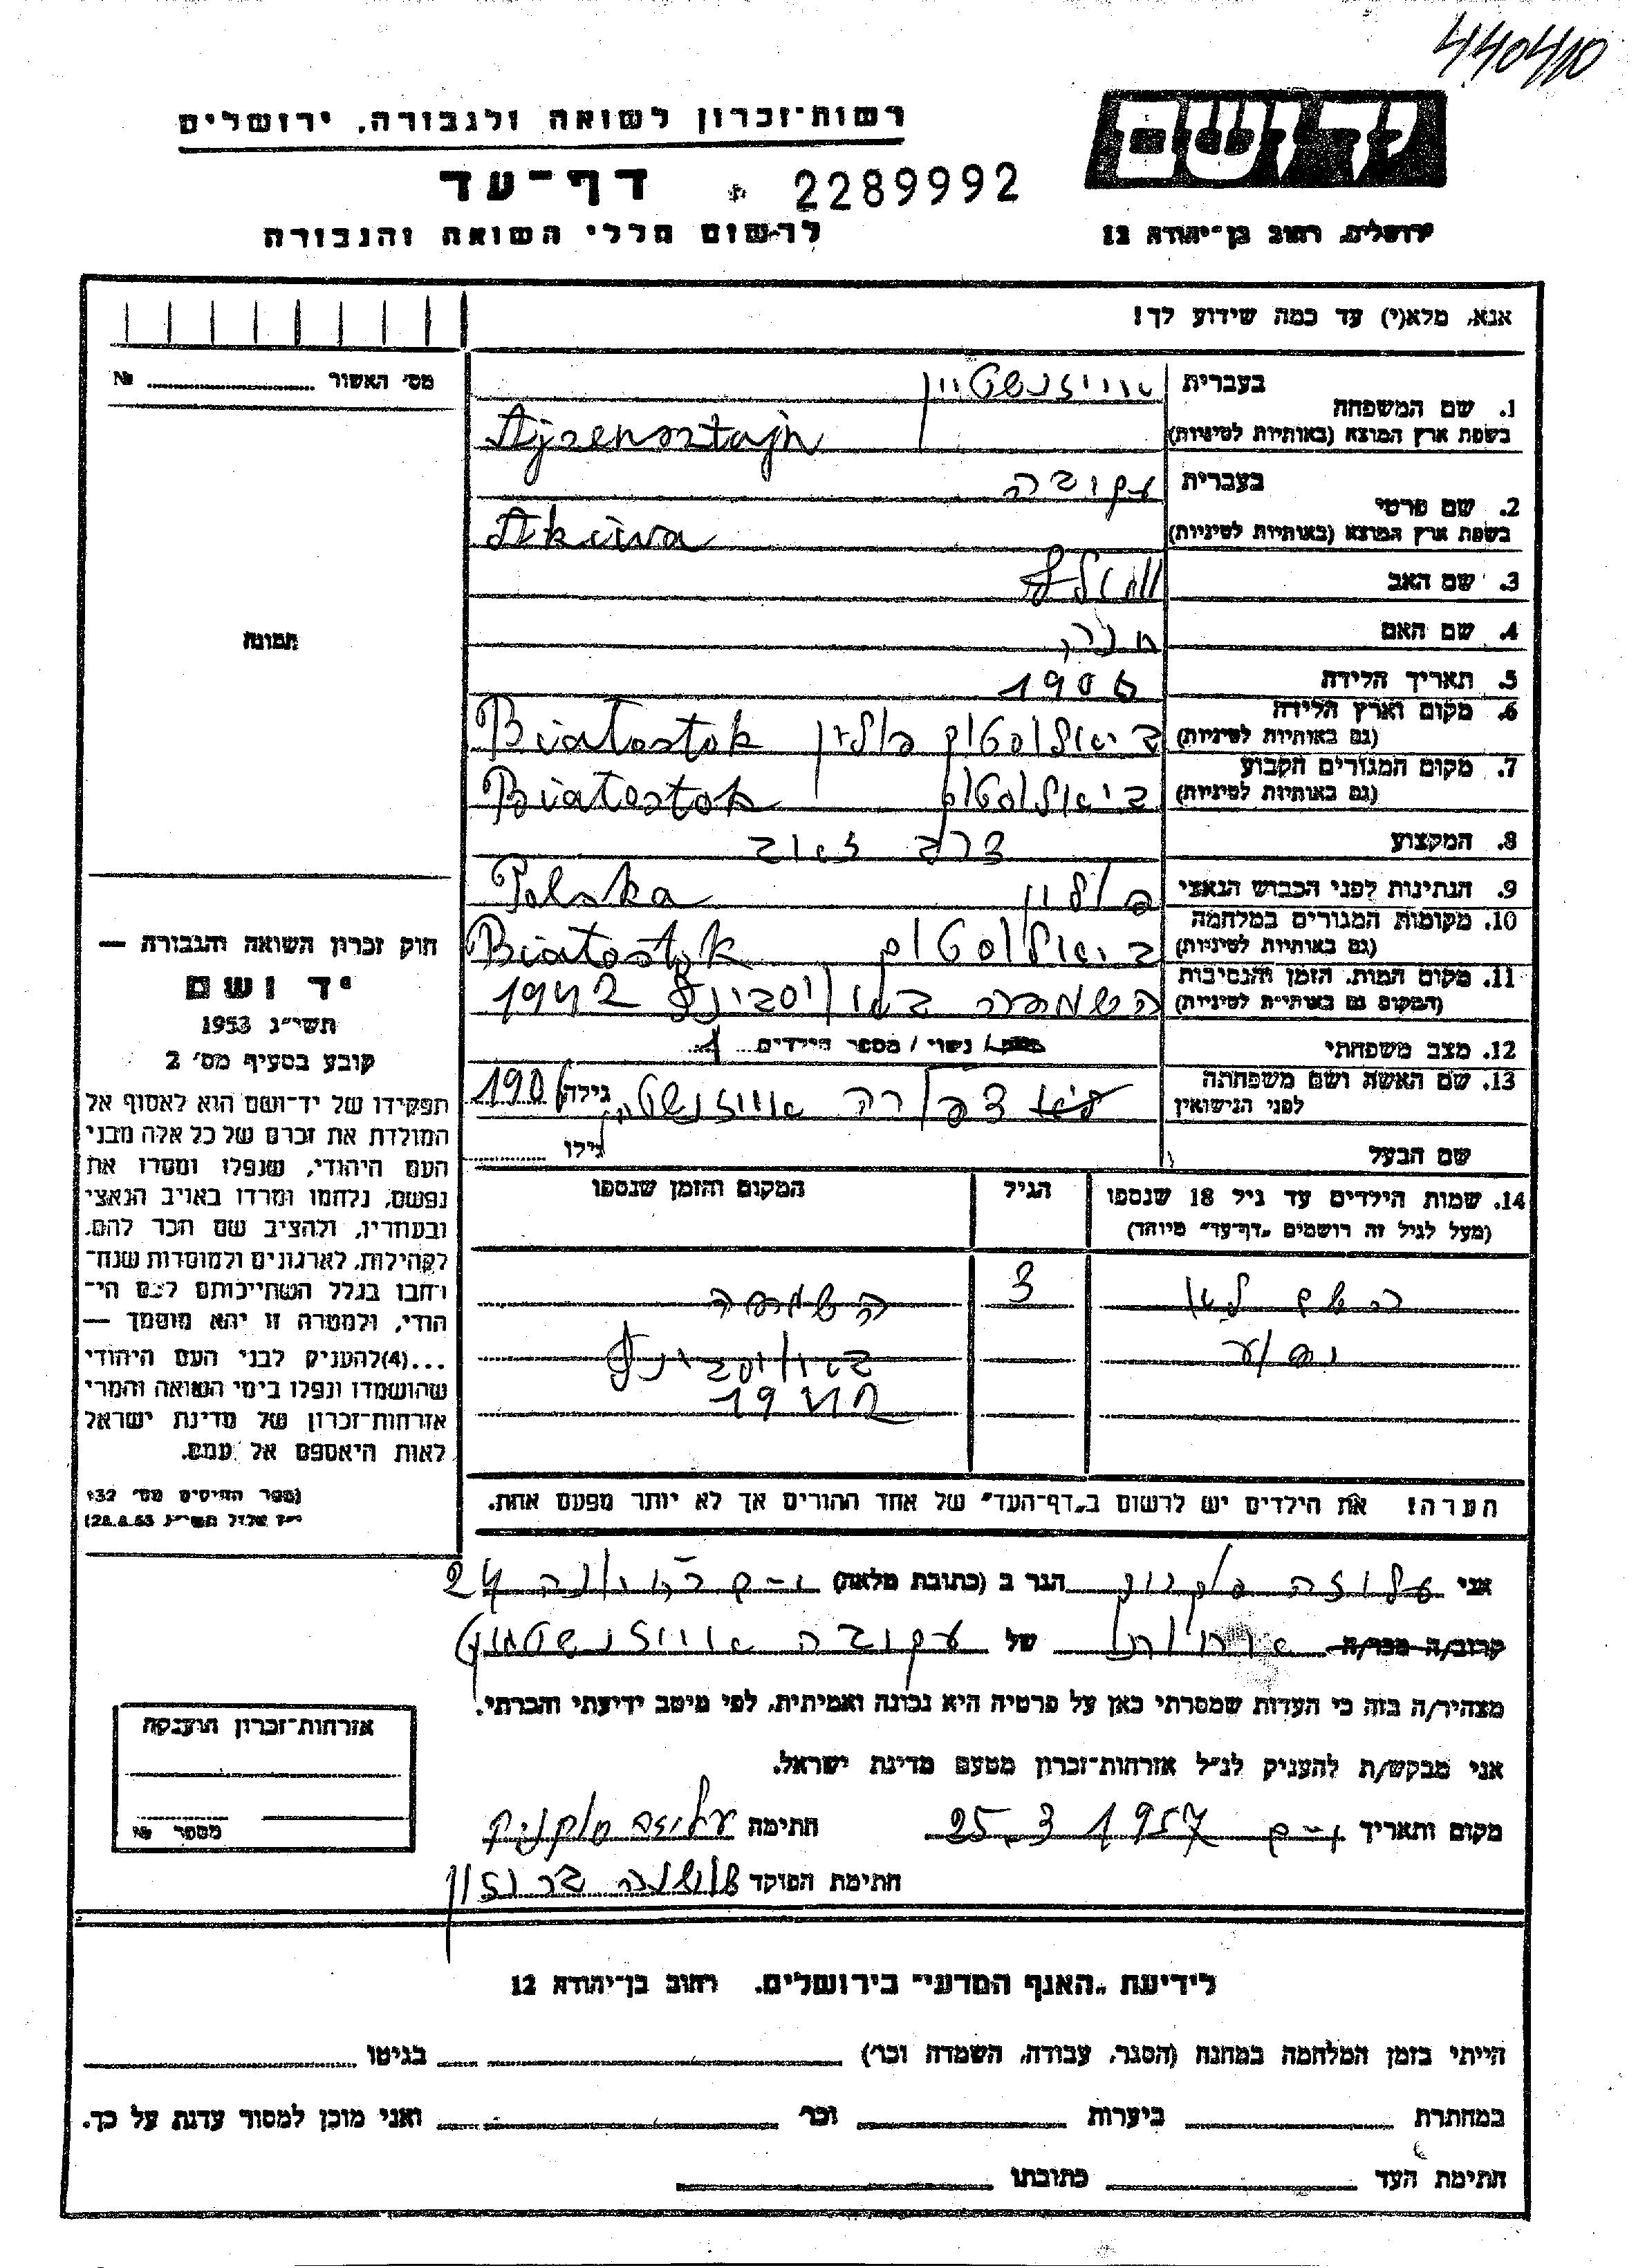 440410
יד ושם
רשות־זכרון לשואה ולגבורה, ירושלים
דף־עד
2289992
לרשום חללי השואה והגבורה
ירושלים, רחוב בן־יהודה 12
אנא, מלא(י) עד כמה שידוע לך!
מס' האשור № 
1. שם המשפחה
בעברית אייזנשטיין
בשפת ארץ המוצא (באותיות לטיניות) Ajzensztajn
2. שם פרטי
בעברית עקיבה
בשפת ארץ המוצא (באותיות לטיניות) Akiwa
3. שם האב
4. שם האם
5. תאריך הלידה 1906
6. מקום וארץ הלידה
(גם באותיות לטיניות) ביאליסטוק פולין Białostok
7. מקום המגורים הקבוע
(גם באותיות לטיניות) ביאליסטוק Białostok
8. המקצוע
9. הנתינות לפני הכבוש הנאצי פולין Polska
10. מקומות המגורים במלחמה
(גם באותיות לטיניות) ביאליסטוק Białostok
11. מקום המות, הזמן והנסיבות
(המקום גם באותיות לטיניות) השמדה 1942
12. מצב משפחתי / נשוי / מספר הילדים 1
13. שם האשה ושם משפחתה
לפני הנישואין צפורה גילה 1906
שם הבעל גילו
14. שמות הילדים עד גיל 18 שנספו
(מעל לגיל זה רושמים "דף־עד" מיוחד)
הגיל
המקום והזמן שנספו
3 השמדה
1942
הערה! את הילדים יש לרשום ב"דף־העד" של אחד ההורים אך לא יותר מפעם אחת.
תמונה
חוק זכרון השואה והגבורה —
יד ושם
תשי"ג 1953
קובע בסעיף מס' 2
תפקידו של יד־ושם הוא לאסוף אל
המולדת את זכרם של כל אלה מבני
העם היהודי, שנפלו ומסרו את
נפשם, נלחמו ומרדו באויב הנאצי
ובעוזריו, ולהציב שם וזכר להם,
לקהילות, לארגונים ולמוסדות שנח־
רבו בגלל השתייכותם לעם הי־
הודי, ולמטרה זו יהא מוסמך —
...(4) להעניק לבני העם היהודי
שהושמדו ונפלו בימי השואה והמרי
אזרחות־זכרון של מדינת ישראל
לאות היאספם אל עמם.
(ספר החוקים מס' 132
י"ז אלול תשי"ג 28.8.53)
אני עליזה הגר ב (כתובת מלאה) 24
קרוב/ה מכר/ה של עקיבה אייזנשטיין
מצהיר/ה בזה כי העדות שמסרתי כאן על פרטיה היא נכונה ואמיתית, לפי מיטב ידיעתי והכרתי.
אני מבקש/ת להעניק לנ"ל אזרחות־זכרון מטעם מדינת ישראל.
מקום ותאריך 25.3 1957 חתימה עליזה
חתימת הפוקד שושנה
אזרחות־זכרון הוענקה
מספר №
לידיעת "האגף המדעי" בירושלים. רחוב בן־יהודה 12
הייתי בזמן המלחמה במחנה (הסגר, עבודה, השמדה וכו') בגיטו
במחתרת ביערות וכו' ואני מוכן למסור עדות על כך.
חתימת העד כתובתו